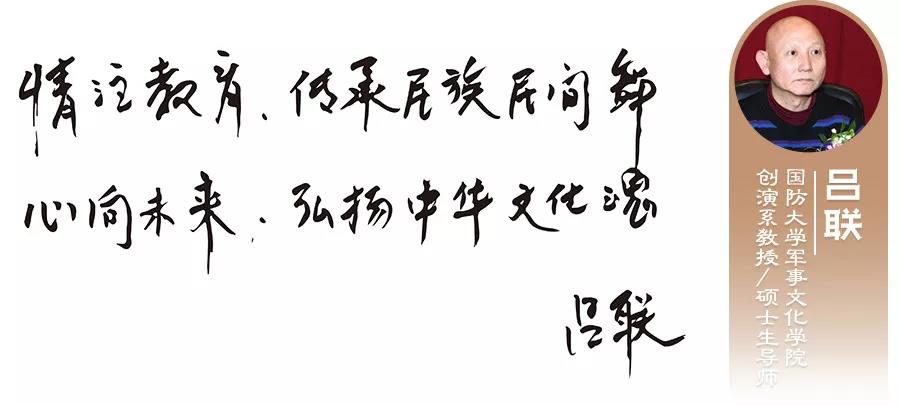 情注教育、传承民族民间舞
心向未来、弘扬中华文化魂
吕联
吕联
国防大学军事文化学院
创演系教授/硕士生导师